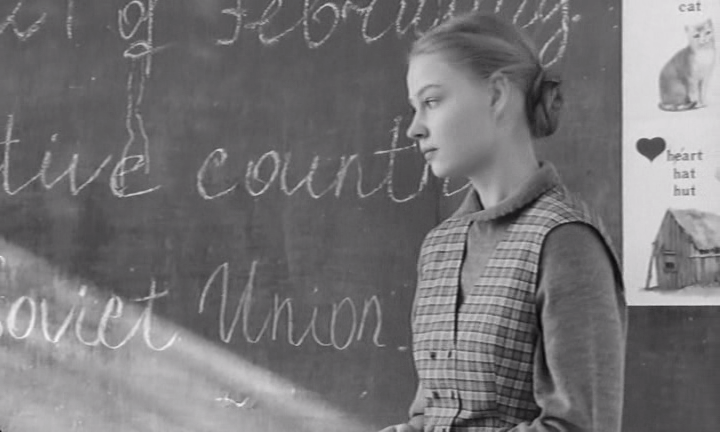 of February
tive countr
Soviet Union.
cat
heart
hat
hut